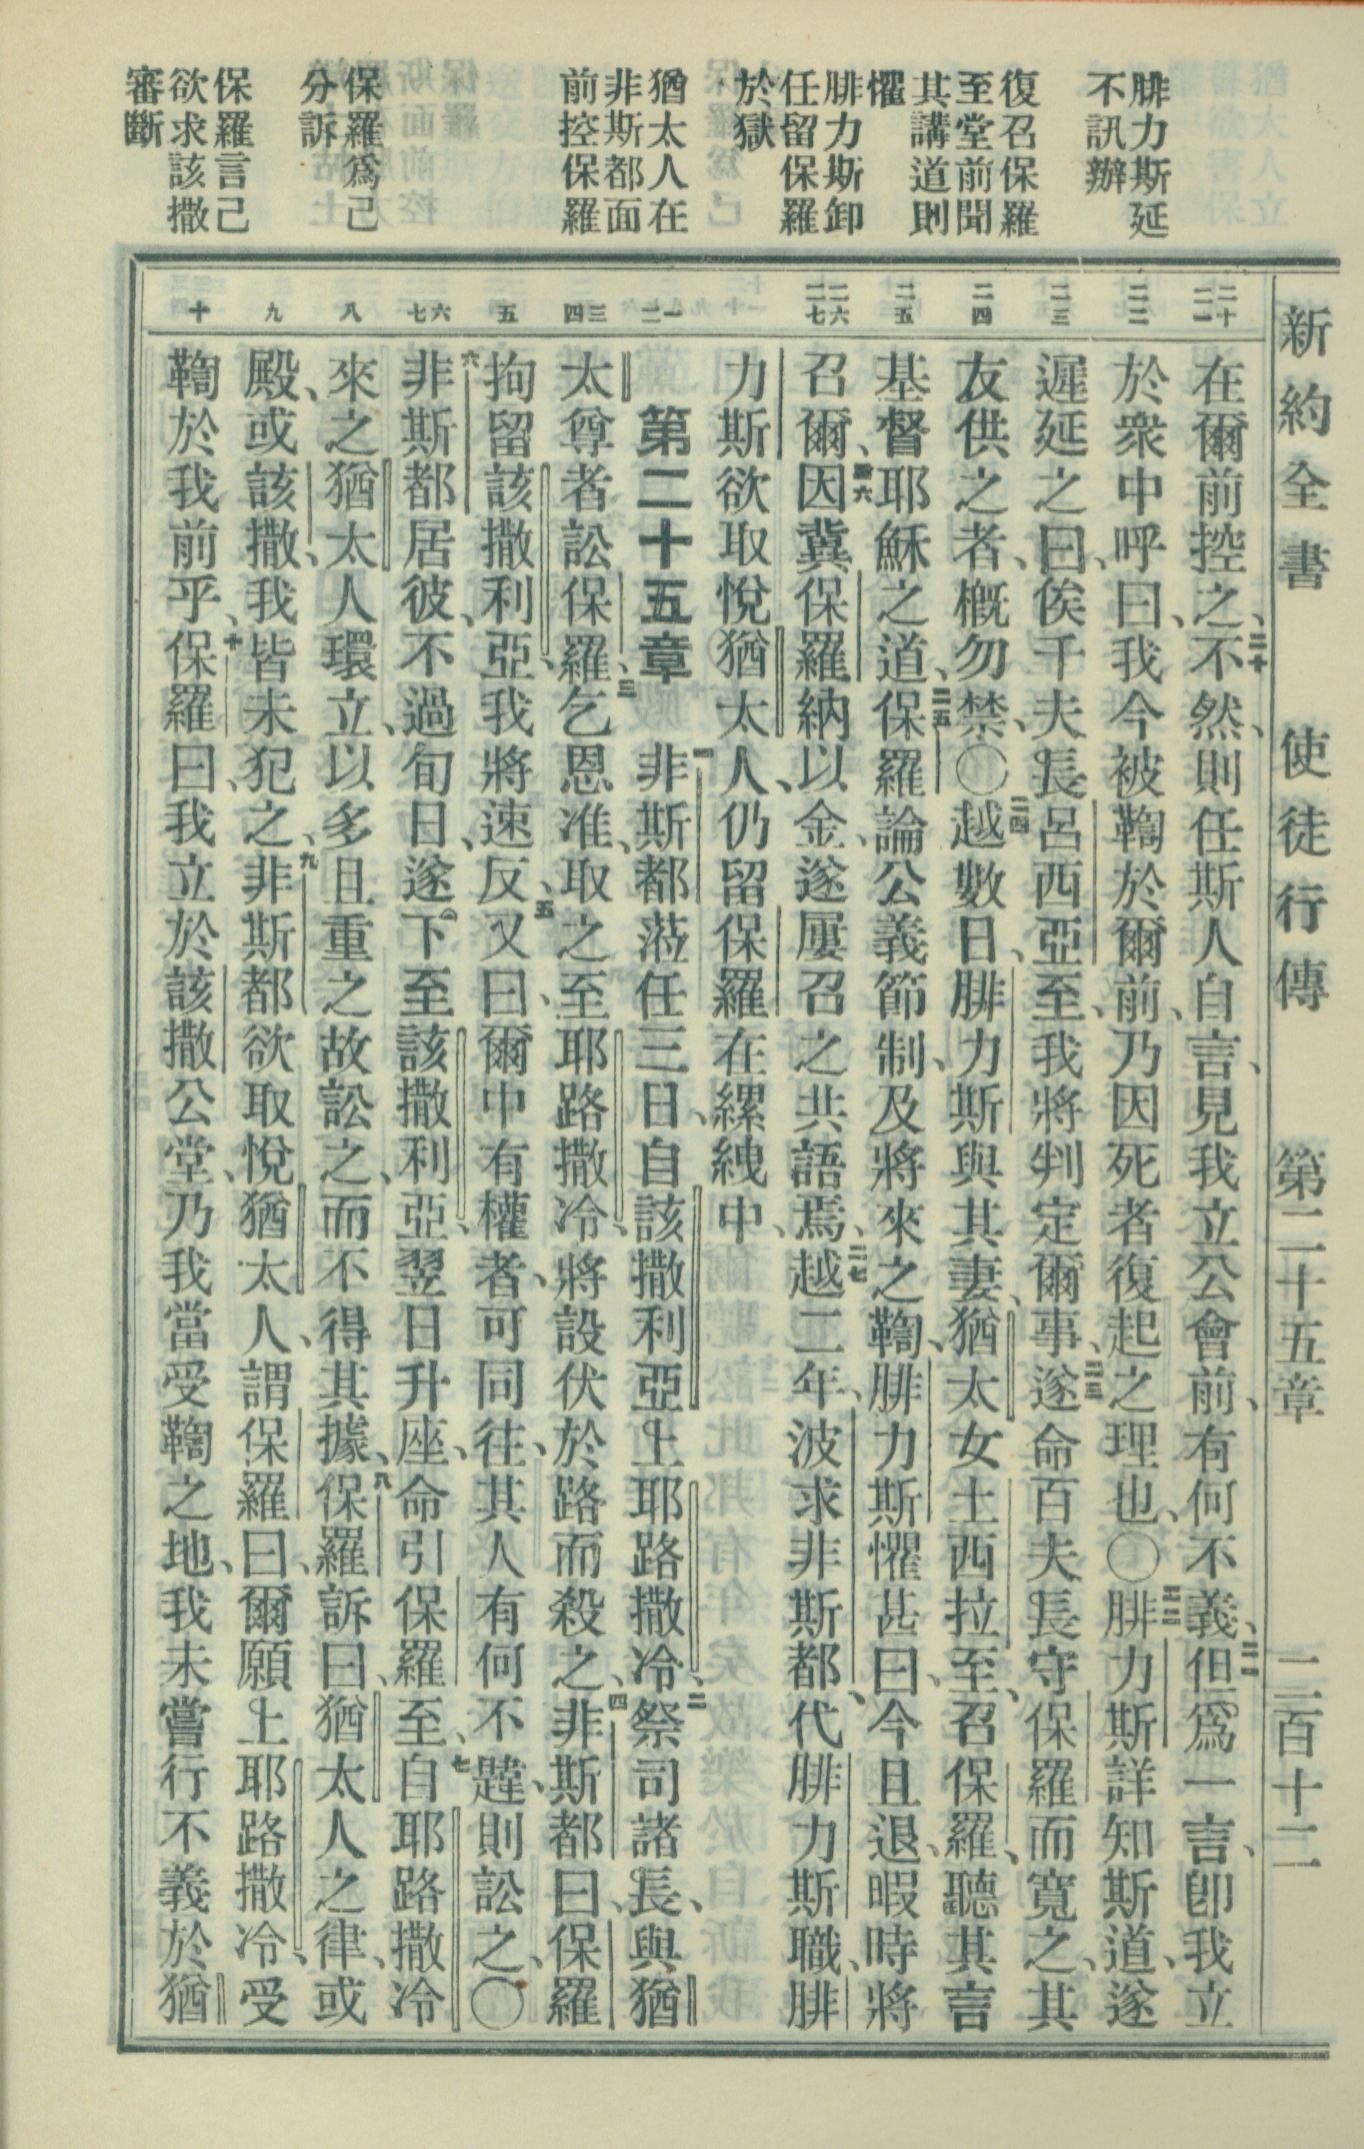 新約全書　使徒行傳　第二十五章　二百十二
腓力斯延
不訊辦
復召保羅
至堂前聞
其講道則
懼
腓力斯卸
任留保羅
於獄
猶太人在
非斯都面
前控保羅
保羅爲己
分訴
保羅言己
欲求該撒
審斷
二十 二一
二二
二三
二四
二五
二六 二七
一 二
三 四
五
六 七
八
九
十
在爾前控之、二十不然、則任斯人自言、見我立公會前、有何不義、二一但爲一言、卽我立
於衆中呼曰、我今被鞫於爾前、乃因死者復起之理也、〇二二腓力斯詳知斯道、遂
遲延之曰、俟千夫長呂西亞至、我將判定爾事、二三遂命百夫長守保羅而寬之、其
友供之者、槪勿禁、〇二四越數日、腓力斯與其妻、猶太女土西拉至、召保羅、聽其言
基督耶穌之道、二五保羅論公義節制、及將來之鞫、腓力斯懼甚曰、今且退、暇時將
召爾、二六因冀保羅納以金、遂屢召之共語焉、二七越二年、波求非斯都、代腓力斯職、腓
力斯欲取悅猶太人、仍留保羅在縲絏中、
第二十五章　一非斯都蒞任三日、自該撒利亞上耶路撒冷、二祭司諸長、與猶
太尊者訟保羅、三乞恩准、取之至耶路撒冷、將設伏於路而殺之、四非斯都曰、保羅
拘留該撒利亞、我將速反、五又曰、爾中有權者、可同往、其人有何不韙、則訟之、〇
六非斯都居彼、不過旬日、遂下至該撒利亞、翌日升座、命引保羅至、七自耶路撒冷
來之猶太人環立、以多且重之故訟之、而不得其據、八保羅訴曰、猶太人之律、或
殿、或該撒、我皆未犯之、九非斯都欲取悅猶太人、謂保羅曰、爾願上耶路撒冷、受
鞫於我前乎、十保羅曰、我立於該撒公堂、乃我當受鞫之地、我未嘗行不義於猶